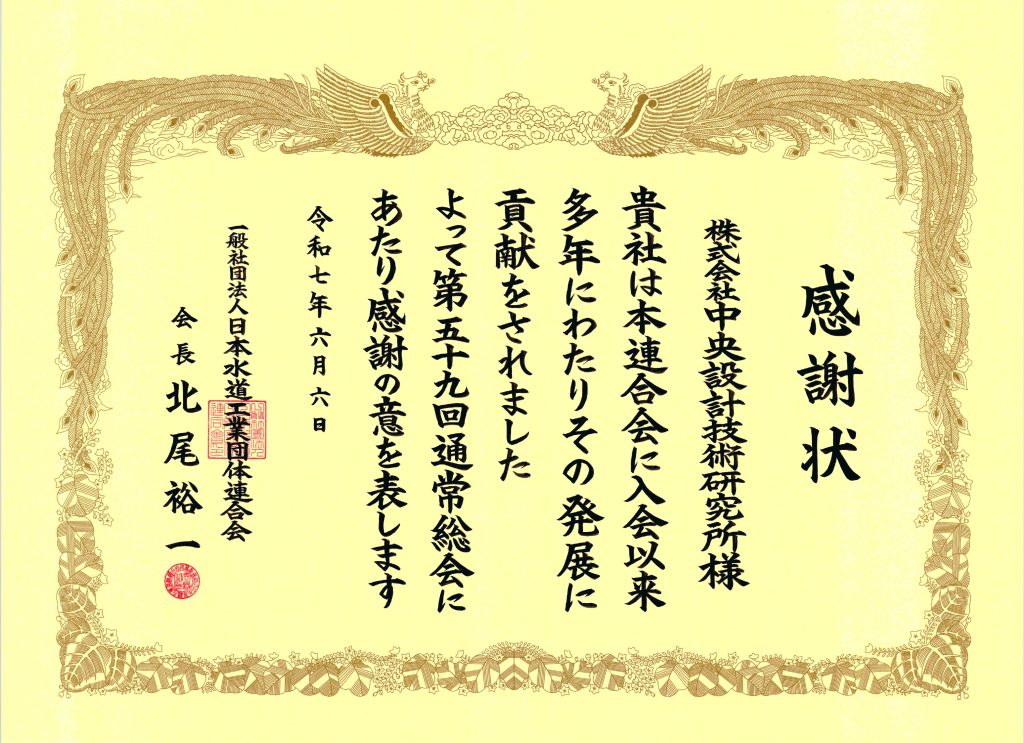 感謝状
株式会社中央設計技術研究所様
貴社は本連合会に入会以来
多年にわたりその発展に
貢献をされました
よって第五十九回通常総会に
あたり感謝の意を表します
令和七年六月六日
一般社団法人日本水道工業団体連合会
会長 北尾裕一